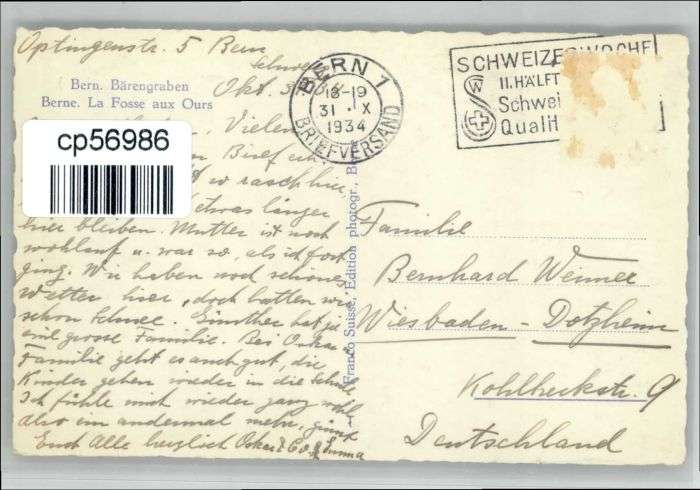 Optingenstr. 5 Bern
Schweiz
Okt. 3
Bern. Bärengraben
Berne. La Fosse aux Ours
BERN 1
18-19
31. X
1934
BRIEFVERSAND
SCHWEIZERWOCHE
II. HÄLFT
Schwei
Qualit
cp56986
Vielen
Brief
so rasch hier
etwas länger
hier bleiben. Mutter ist noch
wohlauf u. war so, als ich fort
ging. Wir haben noch schönes
Wetter hier, doch hatten wir
schon Schnee. Günther hat ja
eine grosse Familie. Bei Oskar
Familie geht es auch gut, die
Kinder gehen wieder in die Schule
Ich fühle mich wieder ganz wohl
also ein andermal mehr,
Euch Alle herzlich Oskar
Franco Suisse, Edition photogr., B
Familie
Bernhard Wenner
Wiesbaden - Dotzheim
Kohlheckstr. 9
Deutschland